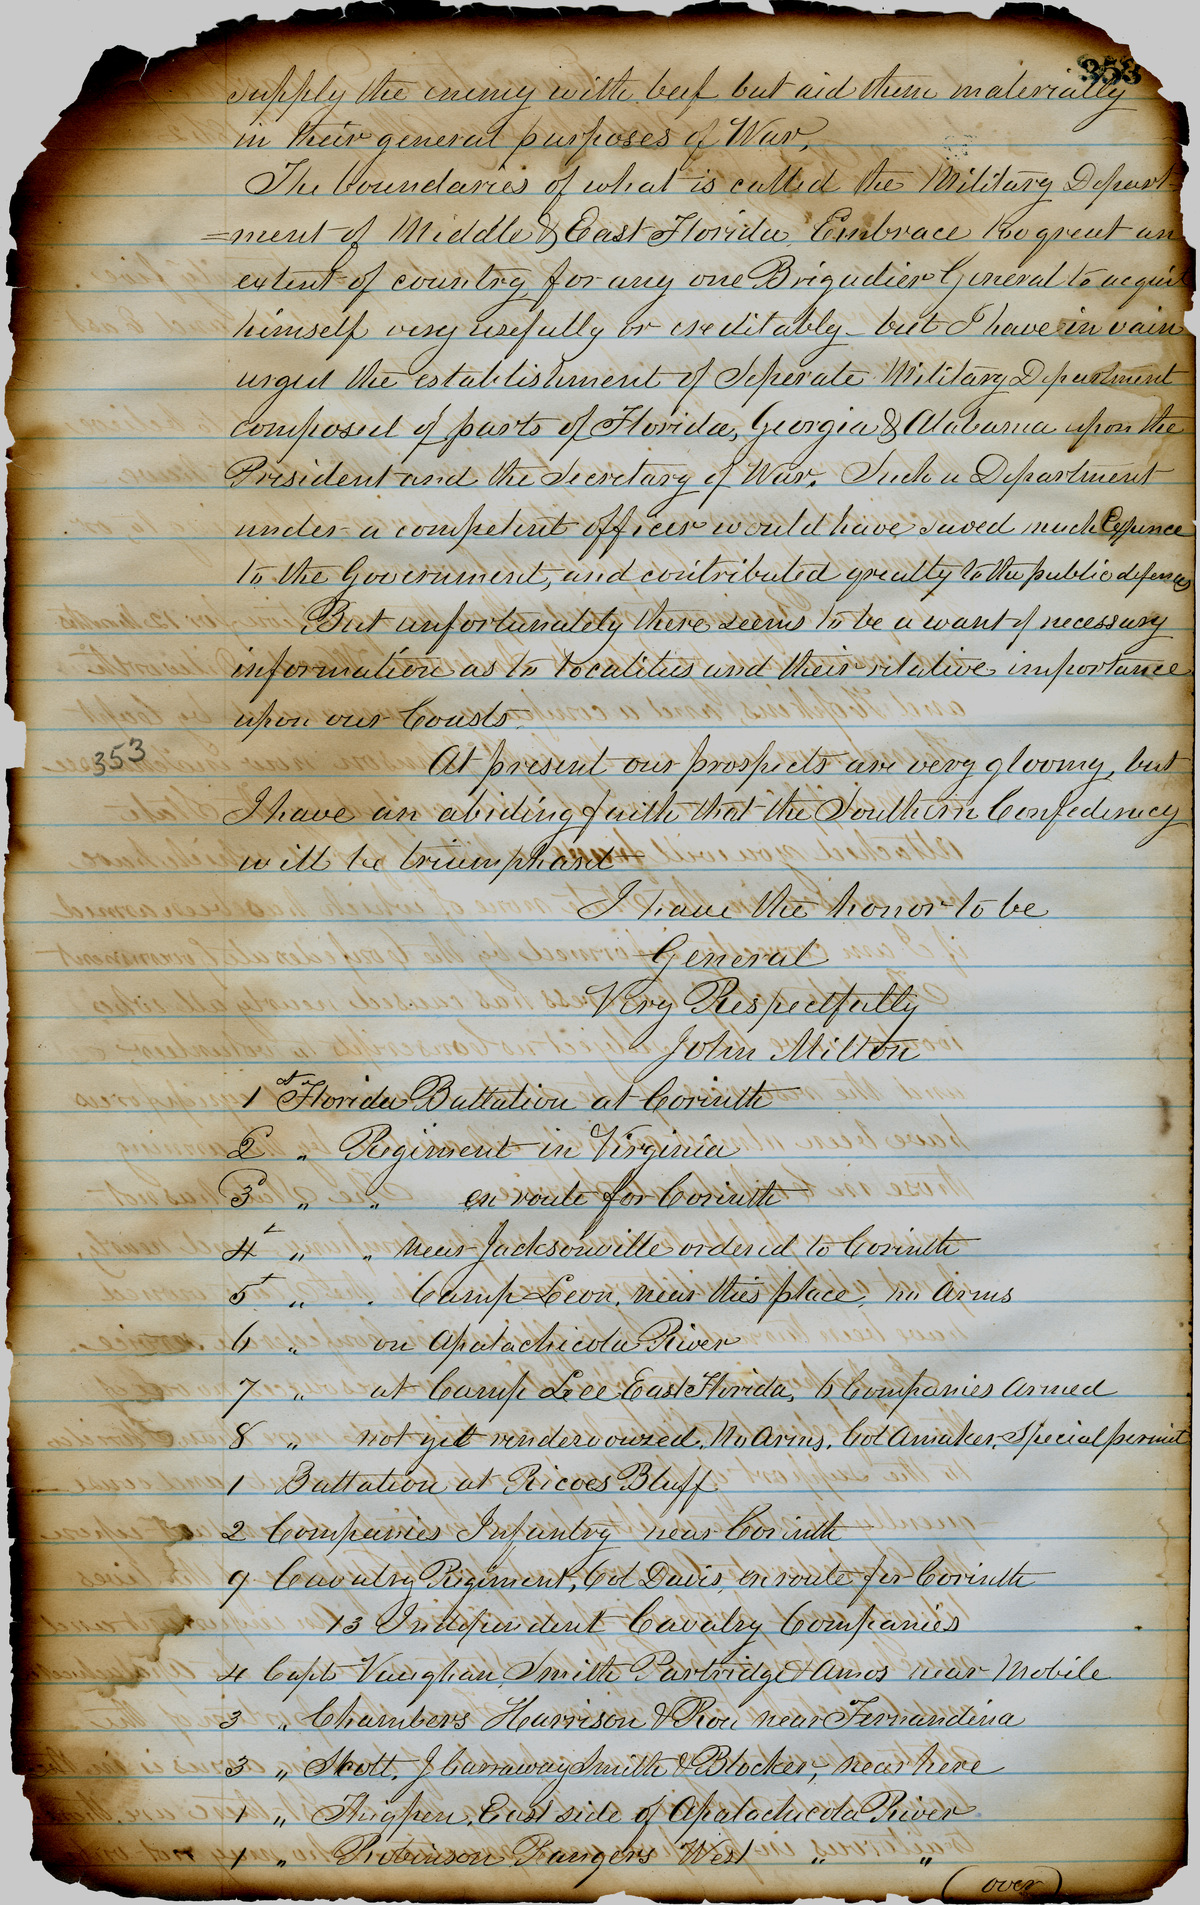 353
supply the enemy with beef but aid them materially
in their general purposes of War.
The boundaries of what is called the Military Depart-
=ment of Middle & East Florida, Embrace too great an
extent of country for any one Brigadier General to acquit
himself very usefully or creditably - but I have in vain
urged the establishment of Seperate Military Department
composed of parts of Florida, Georgia & Alabama upon the
President and the Secretary of War. Such a Department
under a competent officer would have saved much Expence
to the Government, and contributed greatly to the public defence
But unfortunately there seems to be a want of necessary
information as to localities and their relative importance
upon our Coasts.
353
At present our prospects are very gloomy, but
I have an abiding faith that the Southern Confederacy
will be triumphant
I have the honor to be
General
Very Respectfully
John Milton
1st Florida Battalion at Corinth
2 " Regiment in Virginia
3 " " en route for Corinth
4 " " near Jacksonville ordered to Corinth
5 " " Camp Leon, near this place, no Arms
6 " on Apalachicola River
7 " at Camp Lee East Florida, 6 Companies Armed
8 " not yet rendezvoused, No Arms, Col Amaker, Special permit
1 Battalion at Ricoes Bluff
2 Companies Infantry near Corinth
9 Cavalry Regiment, Col Davis, en route for Corinth
13 Independent Cavalry Companies
4 Capts Vaughan, Smith Partridge & Amos near Mobile
3 " Chambers Harrison & Rou near Fernandina
3 " Scott, J Carraway Smith & Blocker, near here
1 " Thigpen, East side of Apalachicola River
1 " Robinson Rangers West " "
(over)